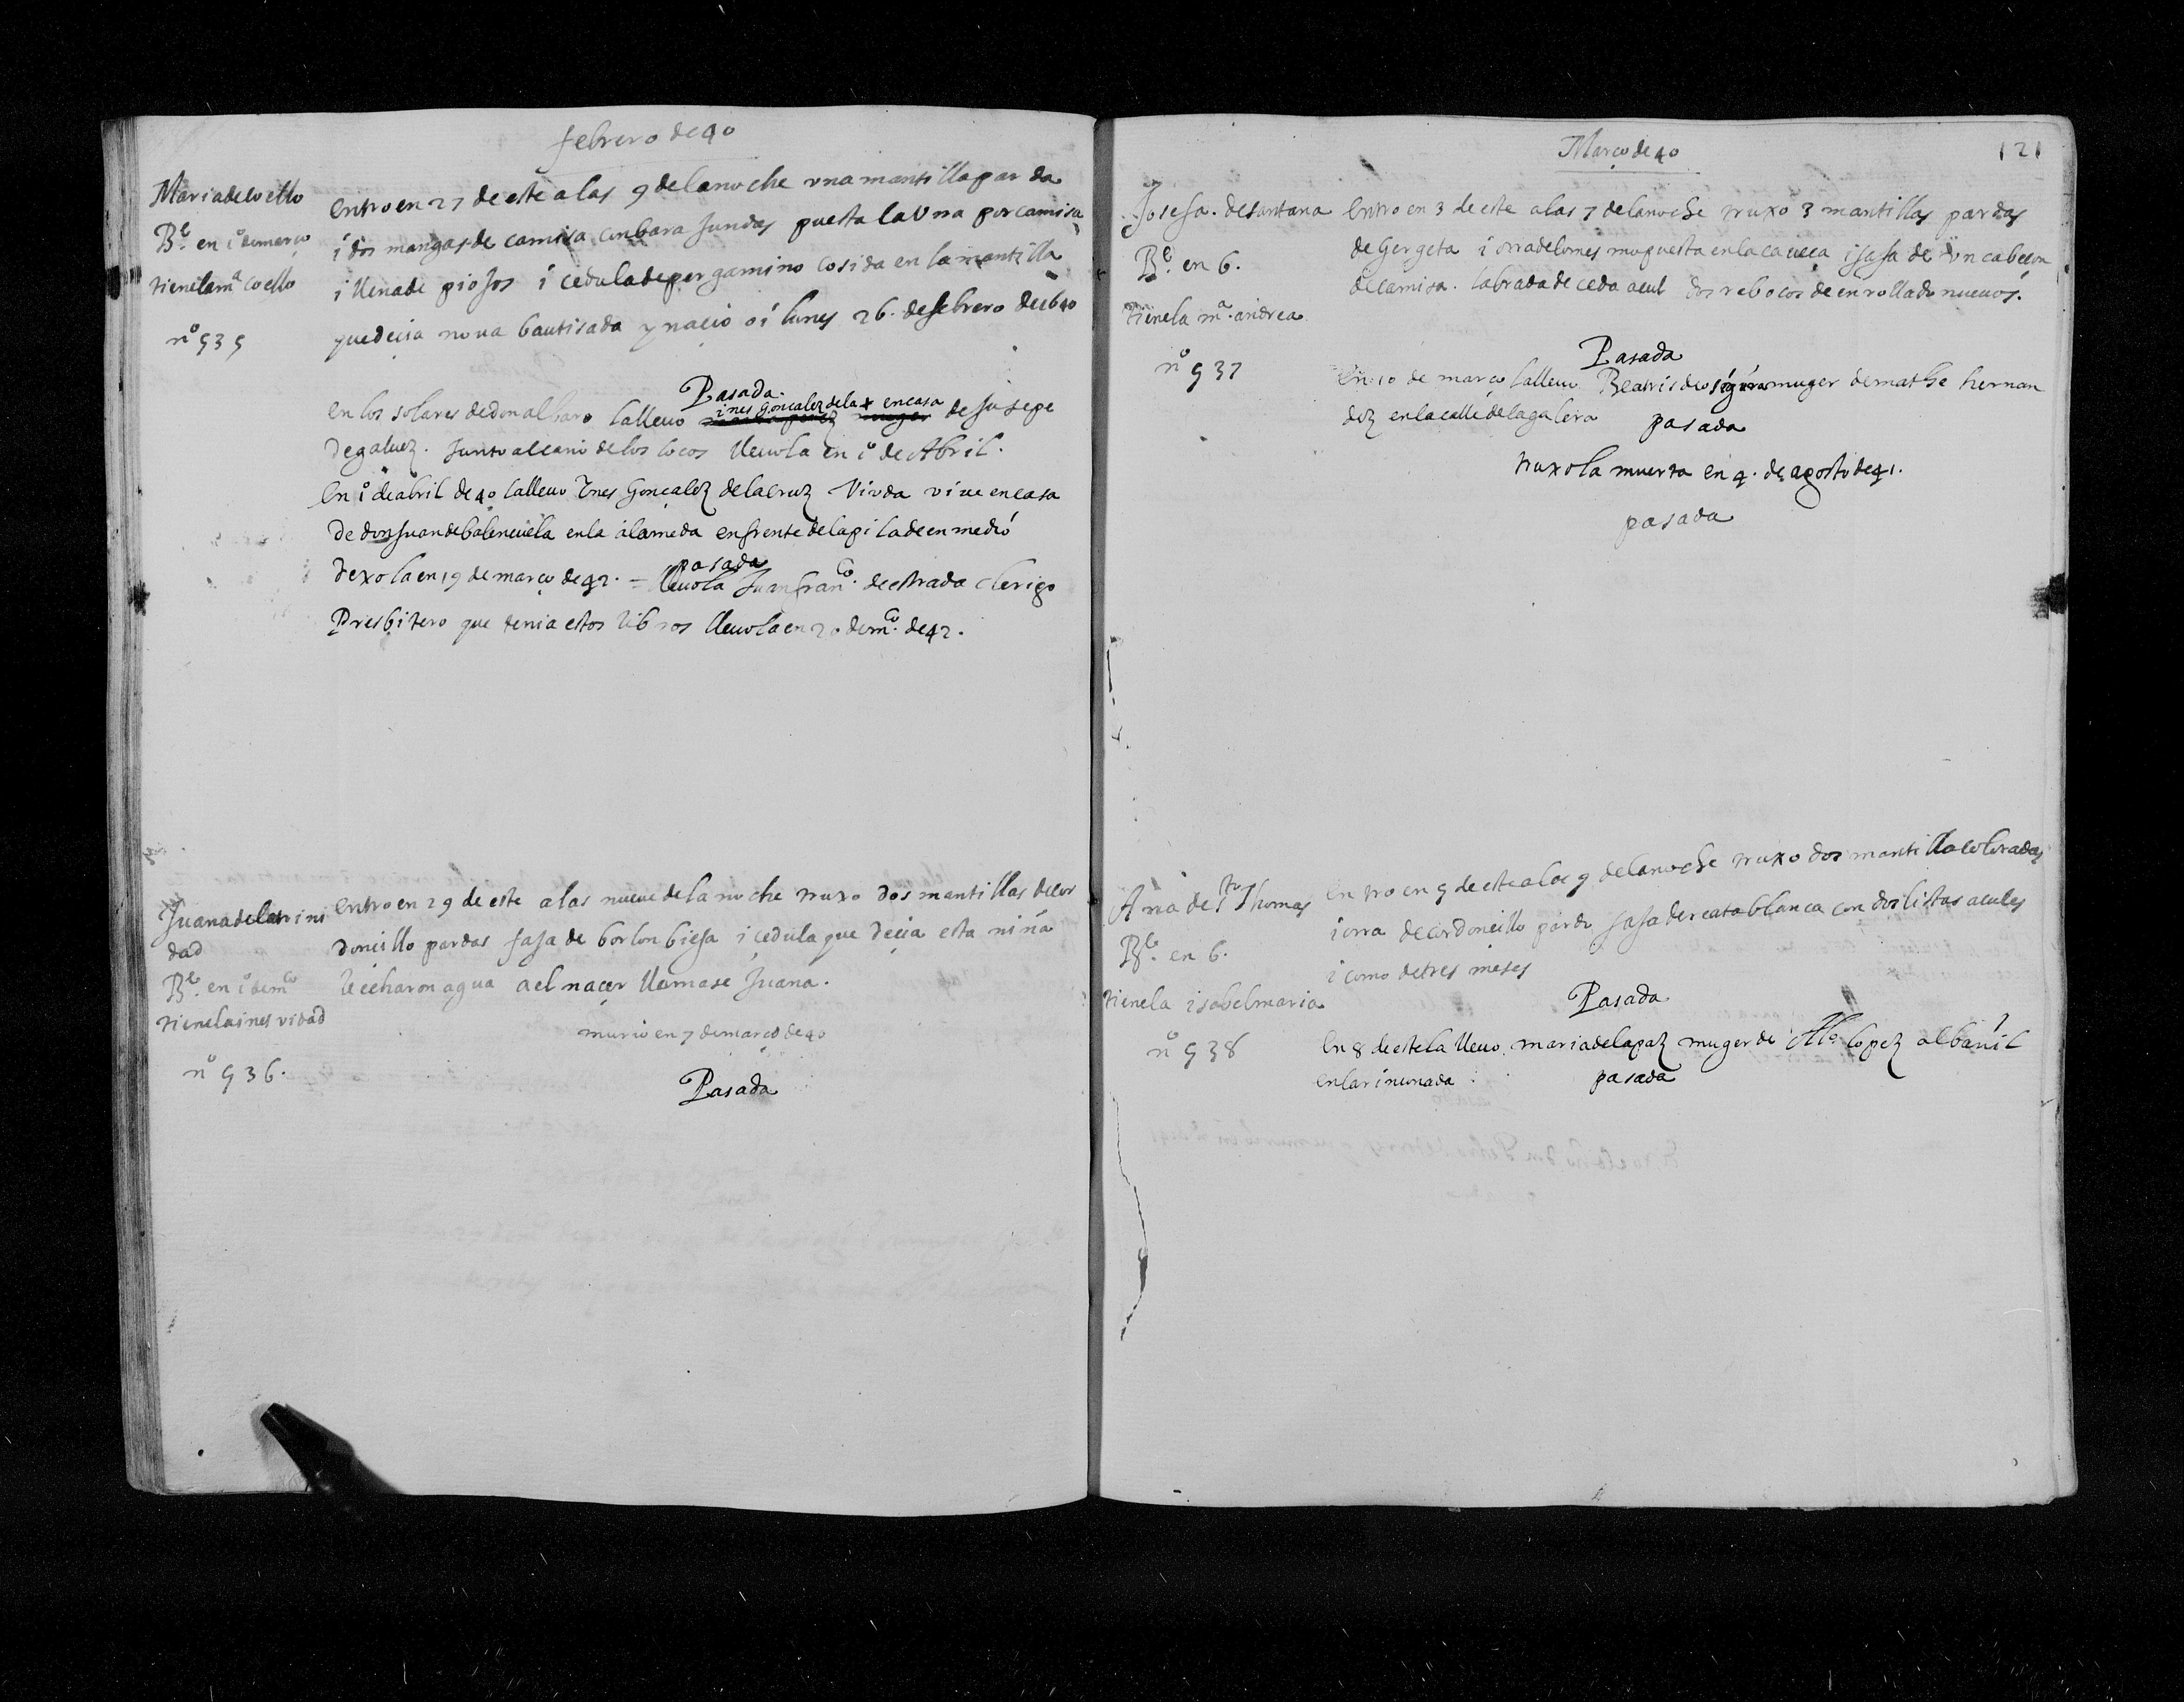 febrero de 40
Maria de coello
Be. en 1º de março
tienela mª coello
nº 535
entro en 27 de este a las 9 de la noche una mantilla parda
i dos mangas de camisa con bara fundas puesta la una por camisa
i llena de piojos i cedula de pergamino cosida en la mantilla
que decia no va bautisada y nacio oi lunes 26. de febrero de 1640
Pasada.
ines gonçalez de la + en casa
en los solares de don albaro la lleuo de Jusepe
de galuez. junto al cano de los locos lleuola en 1º de Abril.
en 1º de abril de 40 la lleuo Ynes Gonçalez de la cruz Viuda viue en casa
de don juan de balençuela en la alameda enfrente de la pila de en medio
pasada
dexola en 19 de março de 42. = lleuola Juan franco. de estrada clerigo
Presbitero que tenia estos libros lleuola en 20 de mço. de 42.
Juana de la trini
dad
Be. en 1º de mço
tienela ines vidad
nº 536.
entro en 29 de este a las nueue de la noche truxo dos mantillas de cor
doncillo pardas faja de borlon biefa i cedula que decia esta niña
le echaron agua a el nacer llamase Juana.
murio en 7 de março de 40
Pasada
Março de 40
121
Josefa. de santana
Be. en 6.
tienela mª. andrea
nº 537
entro en 3 de este a las 7 de la noche truxo 3 mantillas pardas
de gergeta i otra de lomesmo puesta en la caueça i faja de un cabeçon
de camisa. labrada de ceda açul dos reboços de enrollado nueuos.
Pasada
en 10 de março la lleuo Beatris de segura muger de mathe hernan
dez en la calle de la galera pasada
truxola muerta en 4. de agosto de 41.
pasada
Ana de sto Thomas
Be. en 6.
tienela isabel maria
nº 538
entro en 5 de este a las 9 de la noche truxo dos mantilla coloradas
i otra de cordoncillo pardo faja de reata blanca con dos listas açules
i como de tres meses
Pasada
en 8 de este la lleuo. maria de la paz muger de Alo lopez albañil
en la rinconada pasada